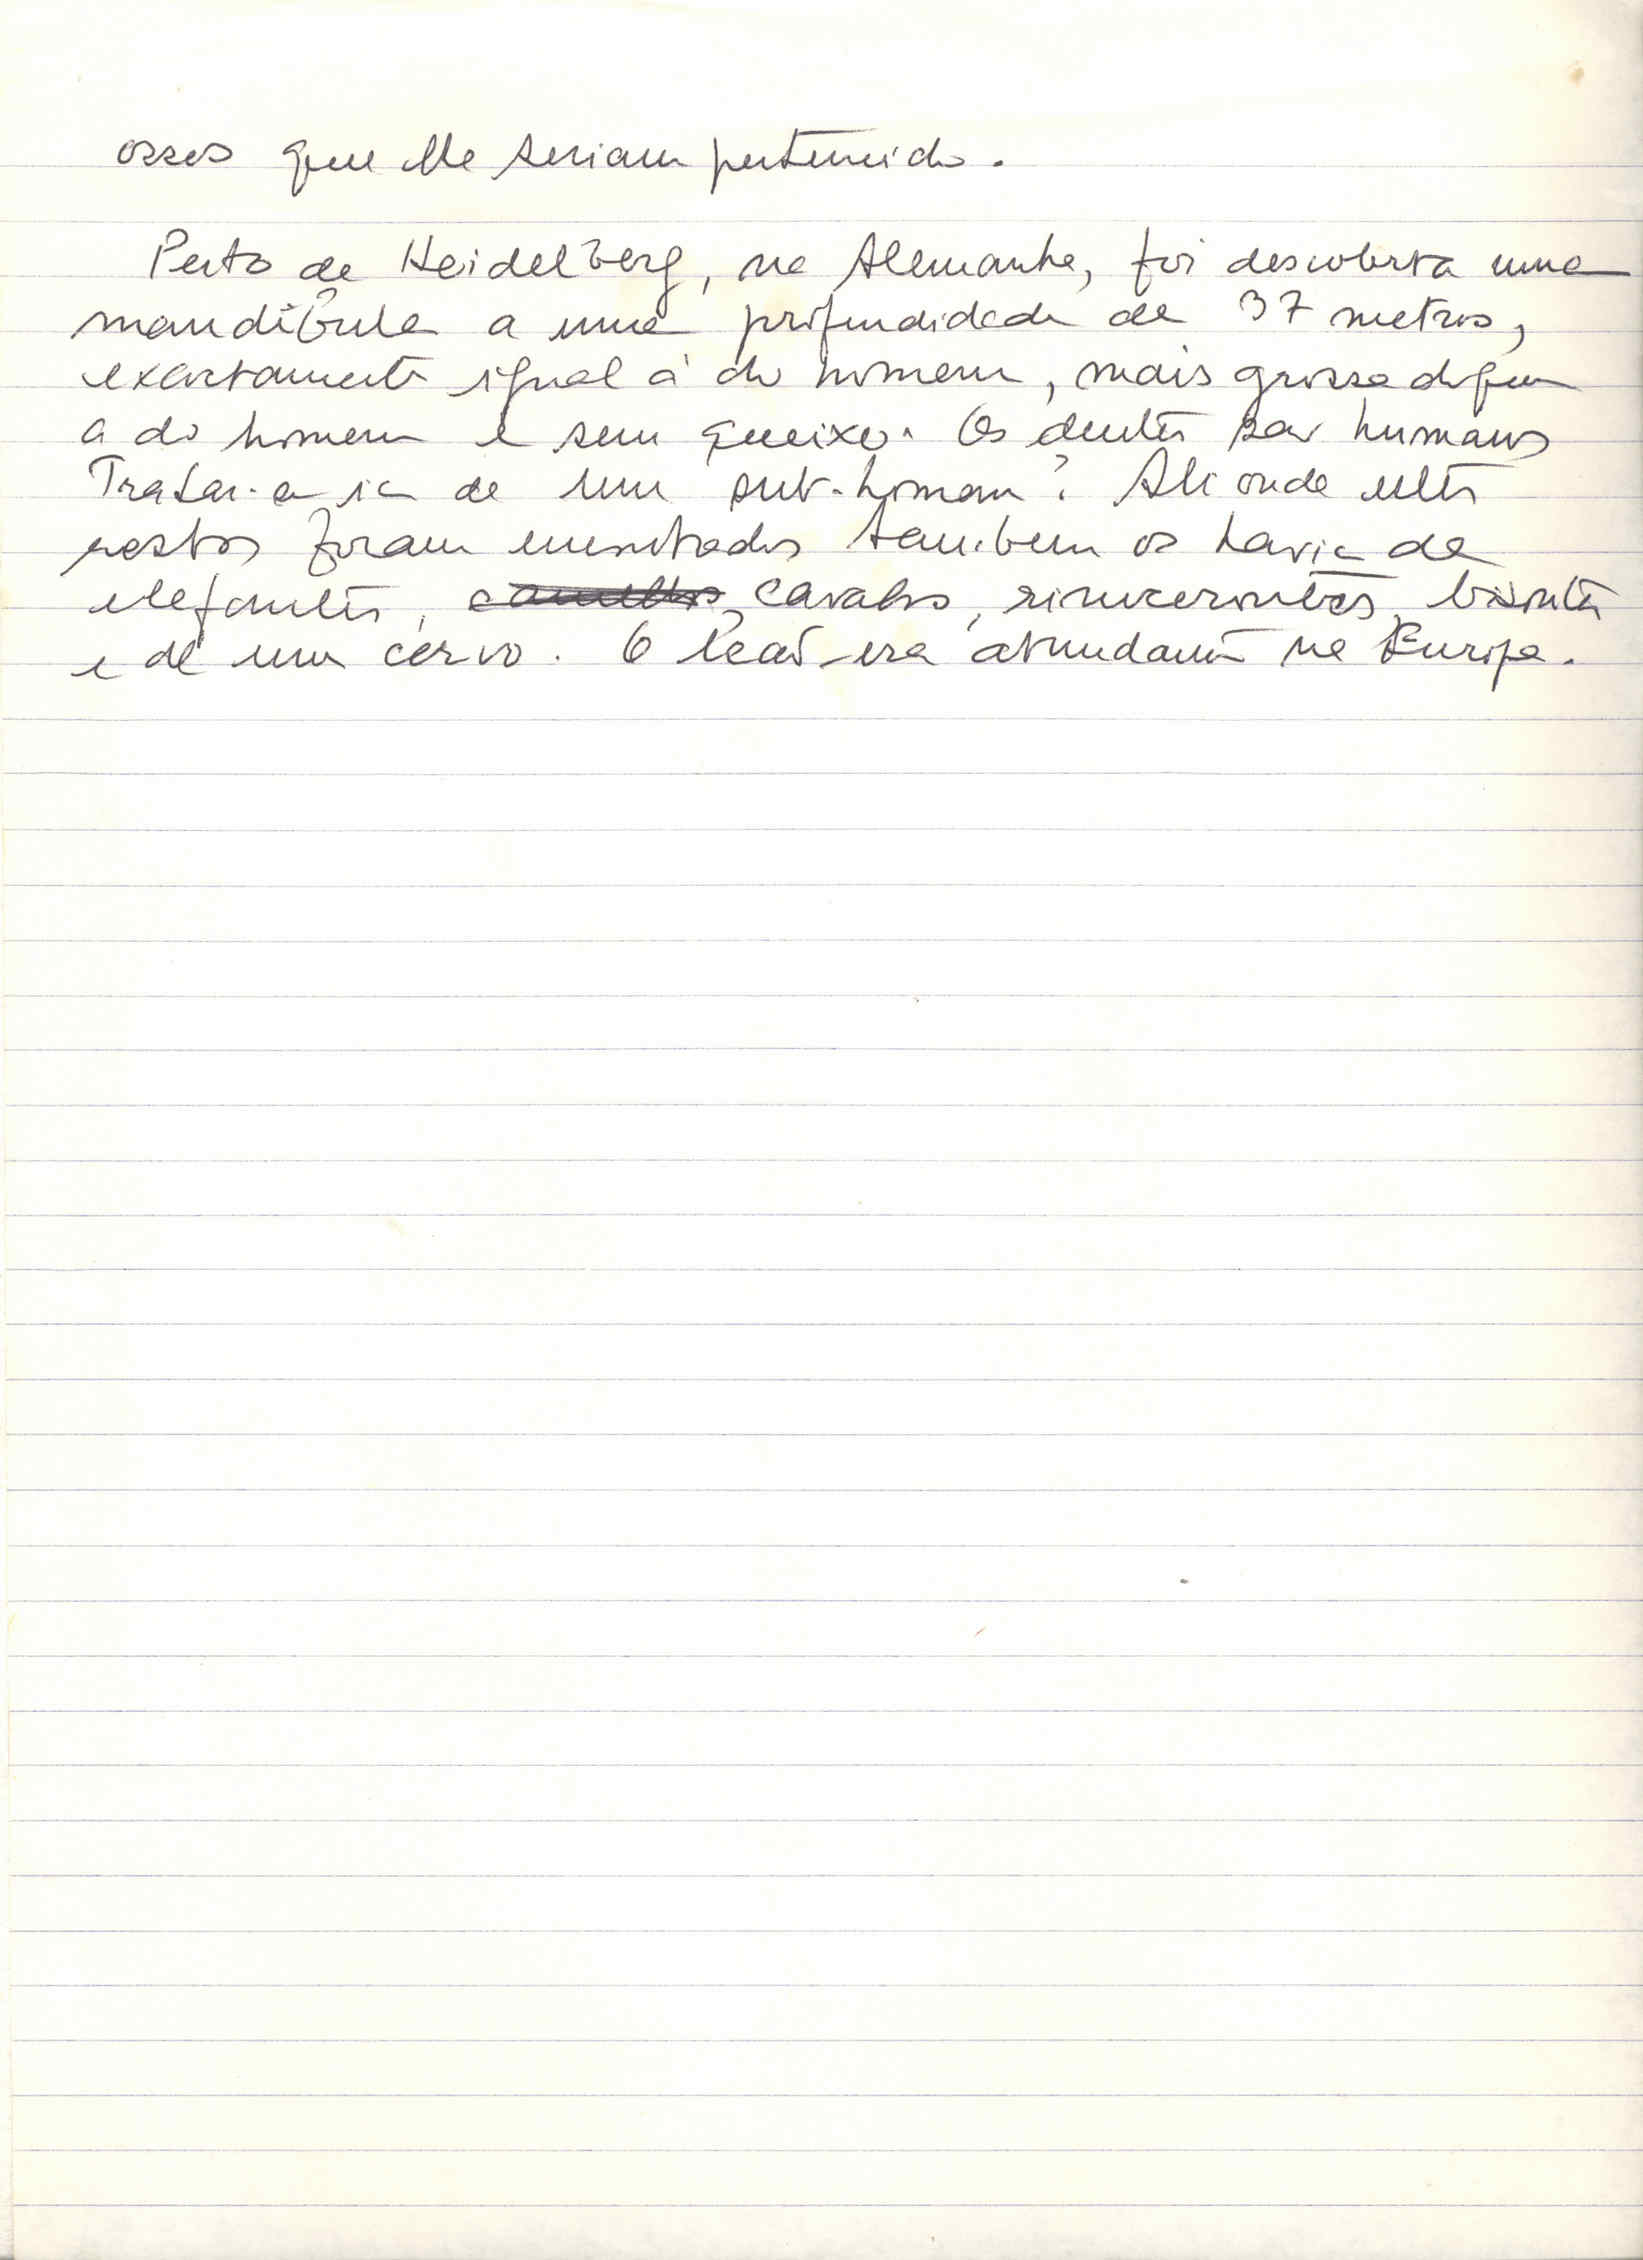 osses que lhe seriam pertencido.
Perto de Heidelberg, na Alemanha, foi descoberta uma
mandíbula a uma profundidade de 37 metros,
exactamente igual à do homem, mais grossa do que
a do homem e sem queixo. Os dentes são humanos
Tratar-se-ia de um sub-homem? Ali onde estes
restos foram encontrados tambem os havia de
elefantes, camellos, cavalos, rinocerontes, bisontes
e de um cervo. O leão era abundante na Europa.